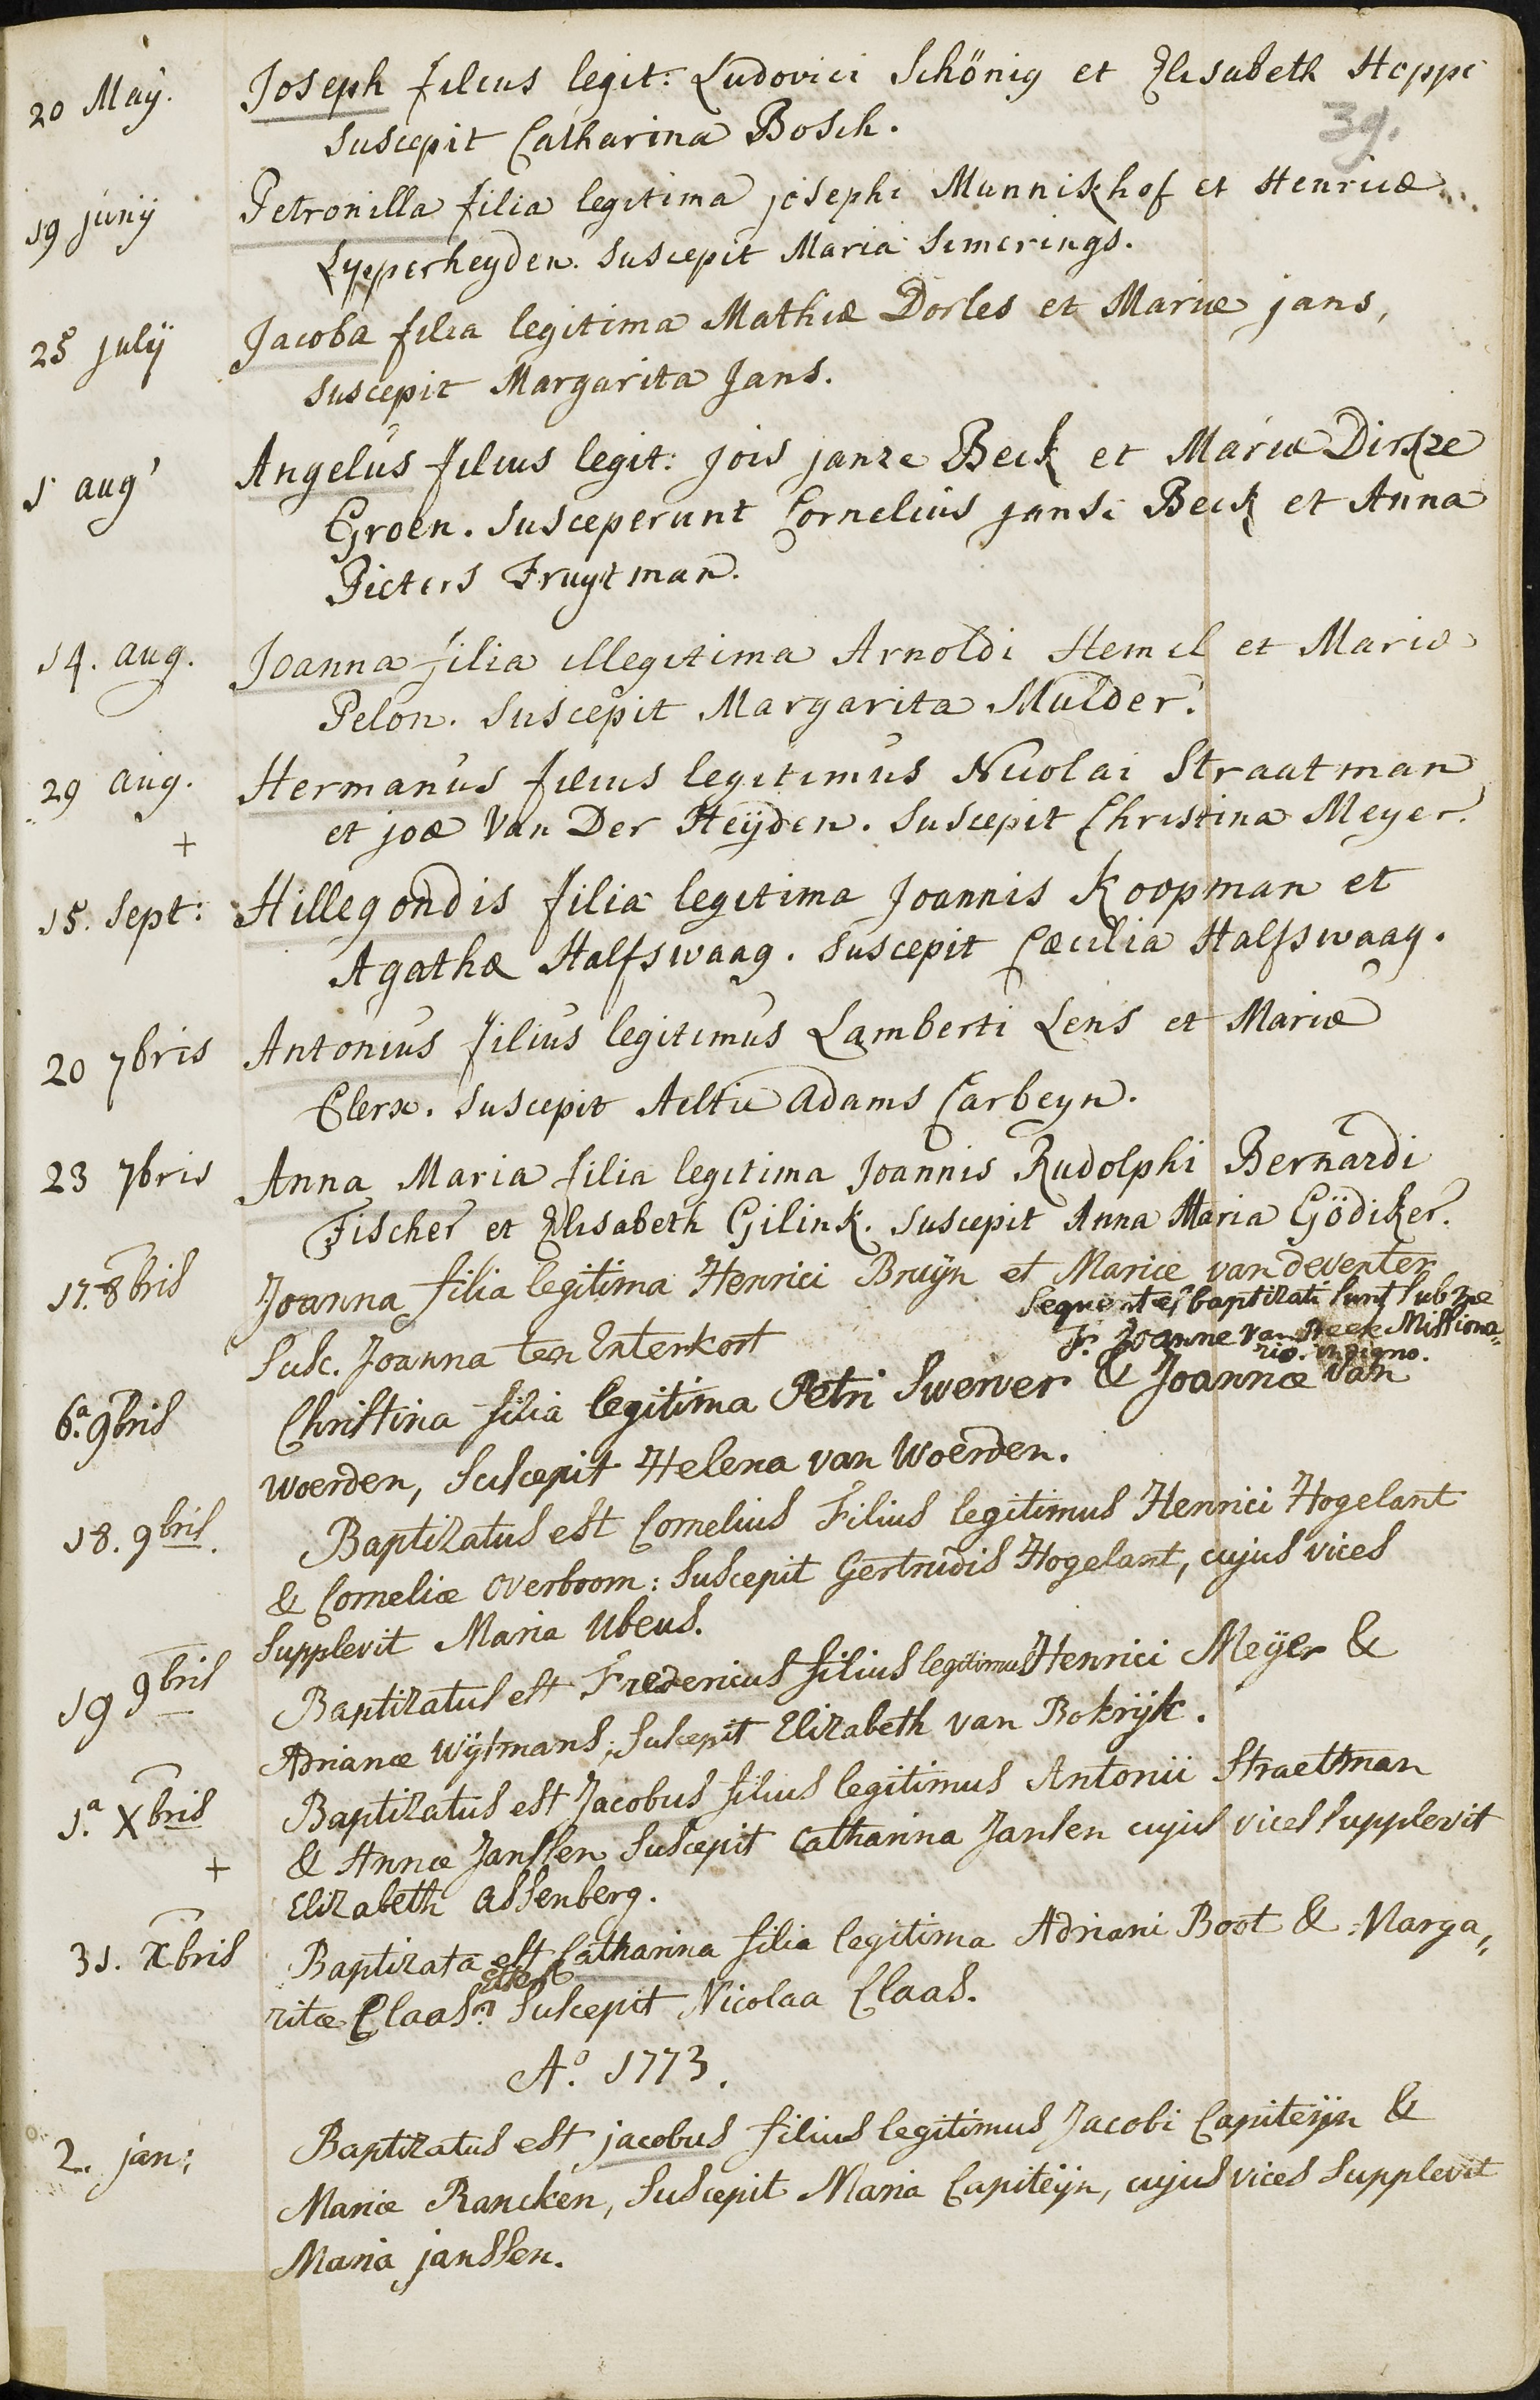 20 Maÿ. Joseph filius legit: Ludovici Schönig et Elisabeth Hoppe
suscepit Catharina Bosch.
39.
19 junÿ Petronilla filia legitima josephi Munnikhof et Henricæ
Lypperheyden. suscepit Maria Simerings.
25 julÿ Jacoba filia legitima Mathiæ Dorles et Mariæ jans,
suscepit Margarita Jans.
1 aug Angelus filius legit: jois janze Beck et Mariæ Dirkze
Groen. susceperunt Cornelius janse Beck et Anna
Pieters Fruytman.
14. aug. Joanna filia illegitima Arnoldi Hemel et Mariæ
Pelon. suscepit Margarita Mulder.
29 aug. Hermanus filius legitimus Nicolai Straatman
+ et joæ Van Der Heÿden. suscepit Christina Meyer.
15. sept: Hillegondis filia legitima Joannis Koopman et
Agathæ Halfswaag. suscepit Cæcilia Halfswaag.
20 7bris Antonius filius legitimus Lamberti Lens et Mariæ
Clerx. suscepit Aeltie Adams Carbeyn.
23 7bris Anna Maria filia legitima Joannis Rudolphi Bernardi
Fischer et Elisabeth Gilink. suscepit Anna Maria Gödiker.
17. 8bris Joanna filia legitima Henrici Bruÿn et Mariæ van deventer
Susc. Joanna ten Entenkort
Sequentes baptizati sunt sub
F. Joanne van Beek Missiona=
rio. indigno.
6.a 9bris Christina filia legitima Petri Swerver & Joannæ van
Woerden, Suscepit Helena van Woerden.
18. 9bris. Baptizatus est Cornelius Filius legitimus Henrici Hogelant
& Corneliæ Overboom: Suscepit Gertrudis Hogelant, cujus vices
supplevit Maria Ubeus.
19 9bris Baptizatus est Fredericus filius legitimus Henrici Meÿer &
Adrianæ Wÿtmans; Suscepit Elizabeth van Bokrÿk.
1.a Xbris Baptizatus est Jacobus filius legitimus Antonii Straetman
+ & Annæ Janssen Suscepit Catharina Jansen cujus vices supplevit
Elizabeth Assenberg.
31. Xbris Baptizata est Catharina filia legitima Adriani Boot & Marga=
ritæ Claas. Suscepit Nicolaa Claas.
Ao. 1773.
2. jan: Baptizatus est jacobus filius legitimus Jacobi Capiteÿn &
Mariæ Rancken, Suscepit Maria Capiteÿn, cujus vices supplevit
Maria janssen.